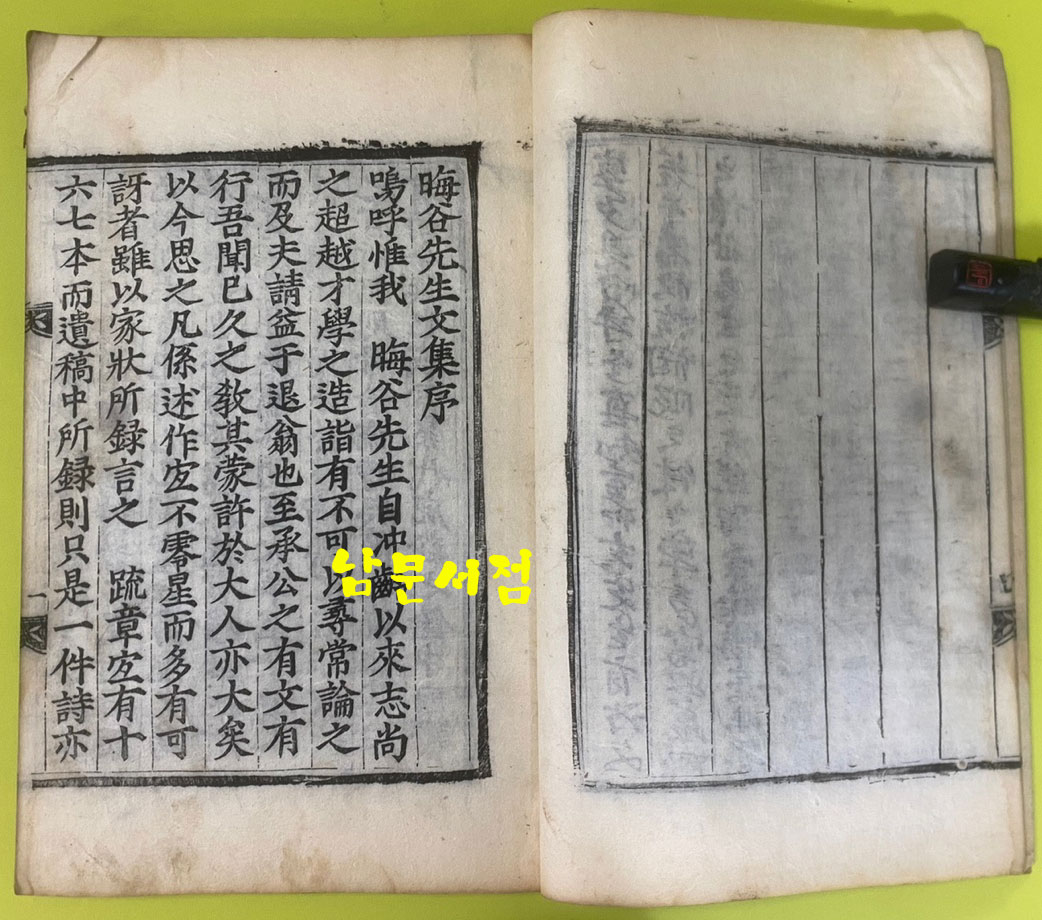 晦谷先生文集序
嗚呼惟我　晦谷先生自冲齡以來志尚
之超越才學之造詣有不可以尋常論之
而及夫請益于退翁也至承公之有文有
行吾聞已久之教其蒙許於大人亦大矣
以今思之凡係述作宜不零星而多有可
訝者雖以家狀所録言之　䟽章宜有十
六七本而遺稿中所録則只是一件詩亦
一
남문서점